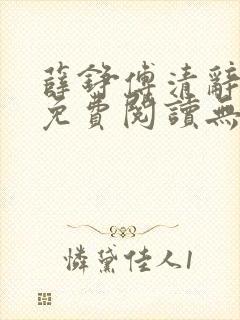 薛錚傅清辭
免費閱讀無
憐黛佳人1